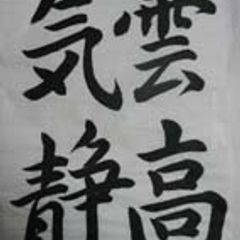 雲高
気静